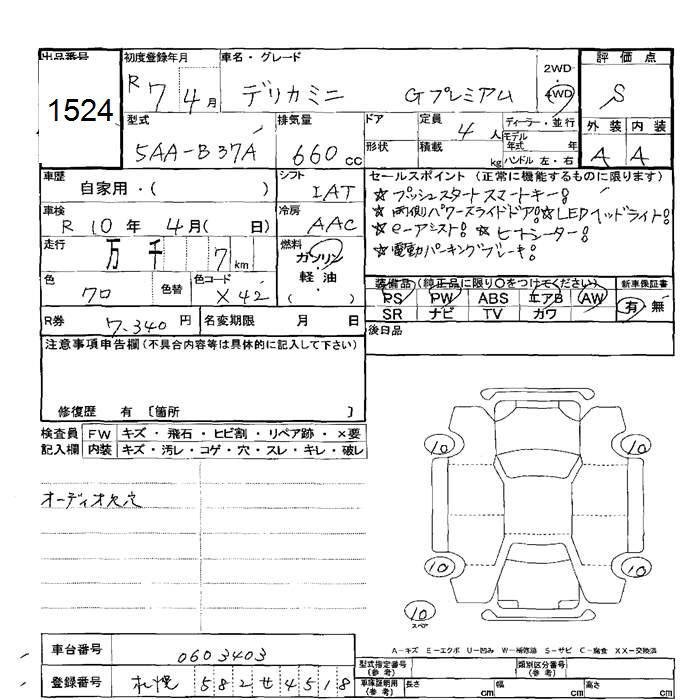 出品番号 初度登録年月 車名・グレード 2WD・4WD 評価点
1524 R7 4月 デリカミニ Gプレミアム S
型式 排気量 ドア 定員 ディーラー・並行 外装 内装
5AA-B37A 660cc 4人 モデル年式 年 A A
形状 積載 kg ハンドル 左・右
車歴 シフト セールスポイント (正常に機能するものに限ります)
自家用・( ) IAT ☆プッシュスタートスマートキー!
車検 冷房 ☆両側パワースライドドア!☆LEDヘッドライト!
R 10年 4月( 日) AAC ☆e-アシスト! ☆ヒートシーター!
走行 燃料 ☆電動パーキングブレーキ!
万 千 7km ガソリン・軽油・( )
色 色替 色コード 装備品 (純正品に限り○をつけてください) 新車保証書
クロ X42 PS PW ABS エアB AW 有・無
SR ナビ TV カワ
R券 7,340円 名変期限 月 日 後日品
注意事項申告欄(不具合内容等は具体的に記入して下さい)
修復歴 有 〔箇所 〕
検査員 FW キズ・飛石・ヒビ割・リペア跡・×要
記入欄 内装 キズ・汚レ・コゲ・穴・スレ・キレ・破レ
10 10
オーディオ欠穴
10 10
10
スペア
A-キズ E-エクボ U-凹み W-補修跡 S-サビ C-腐食 XX-交換済
車台番号 0603403
型式指定番号(参考) 類別区分番号(参考)
登録番号 札幌 582せ4518
車庫証明用(参考) 長さ cm 幅 cm 高さ cm